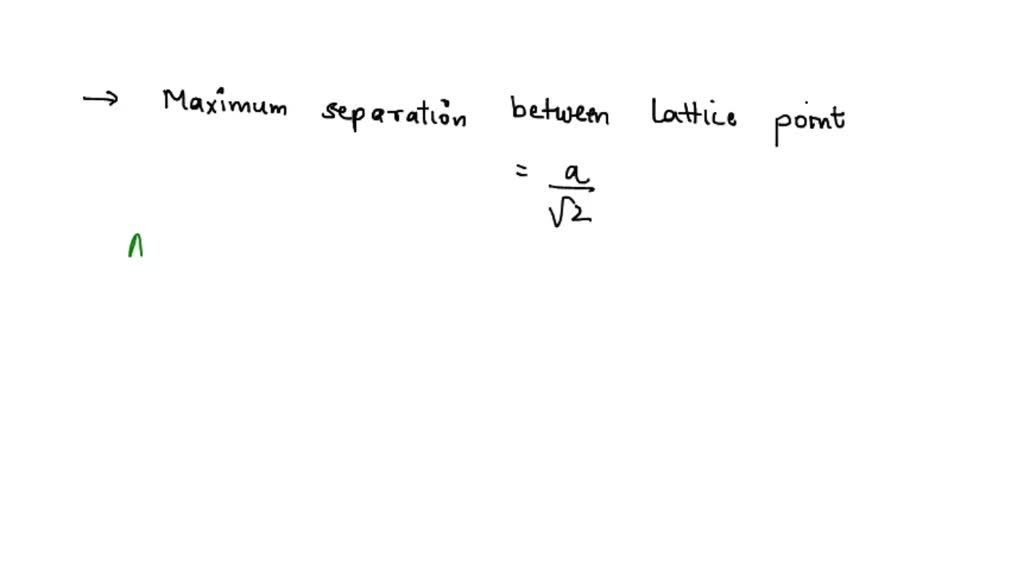 → Maximum separation between lattice point
= a/√2